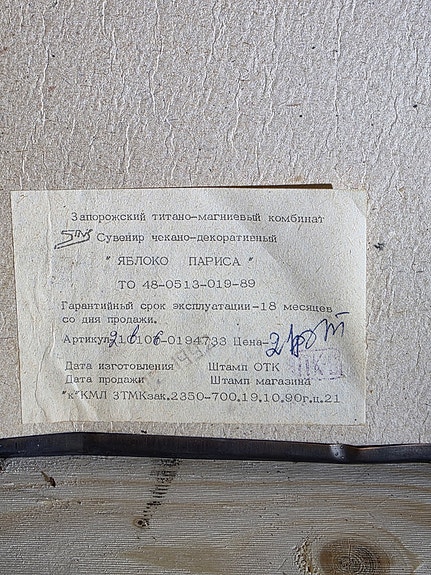 Запорожский титано-магниевый комбинат
Сувенир чекано-декоративный
"ЯБЛОКО ПАРИСА"
ТО 48-0513-019-89
Гарантийный срок эксплуатации-18 месяцев
со дня продажи.
Артикул 210106-0194733 Цена-
Дата изготовления Штамп ОТК
Дата продажи Штамп магазина
"к"КМЛ ЗТМКзак.2350-700.19.10.90г.ц.21